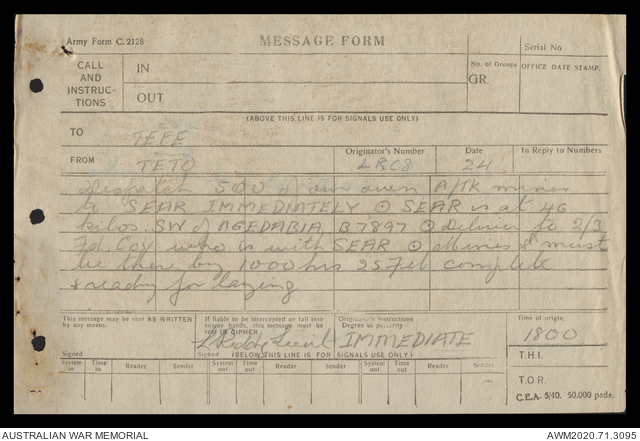 Army Form C. 2128
MESSAGE FORM
Serial No.
CALL AND INSTRUC- TIONS
IN
No. of Groups
GR.
OFFICE DATE STAMP.
OUT
(ABOVE THIS LINE IS FOR SIGNALS USE ONLY)
TO TEFE
FROM TETO
Originator's Number LRC8
Date 24
In Reply to Numbers
Despatch 500 of our own A/TK mines
to SEAR IMMEDIATELY ⊙ SEAR is at 46
kilos SW of AGEDABIA B7897 ⊙ Deliver to 2/3
Fd Coy who is with SEAR ⊙ Mines must
be there by 1000 hrs 25 Feb complete
+ ready for laying
This message may be sent AS WRITTEN by any means.
If liable to be intercepted or fall into enemy hands, this message must be sent IN CIPHER
Originator's Instructions
Degree of priority
IMMEDIATE
Time of origin.
1800
Signed
Signed
Lieut
(BELOW THIS LINE IS FOR SIGNALS USE ONLY)
T.H.I.
System in
Time in
Reader
Sender
System out
Time out
Reader
Sender
System out
Time out
Reader
Sender
T.O.R.
C.E.A. 5/40. 50,000 pads.
AUSTRALIAN WAR MEMORIAL
AWM2020.71.3095